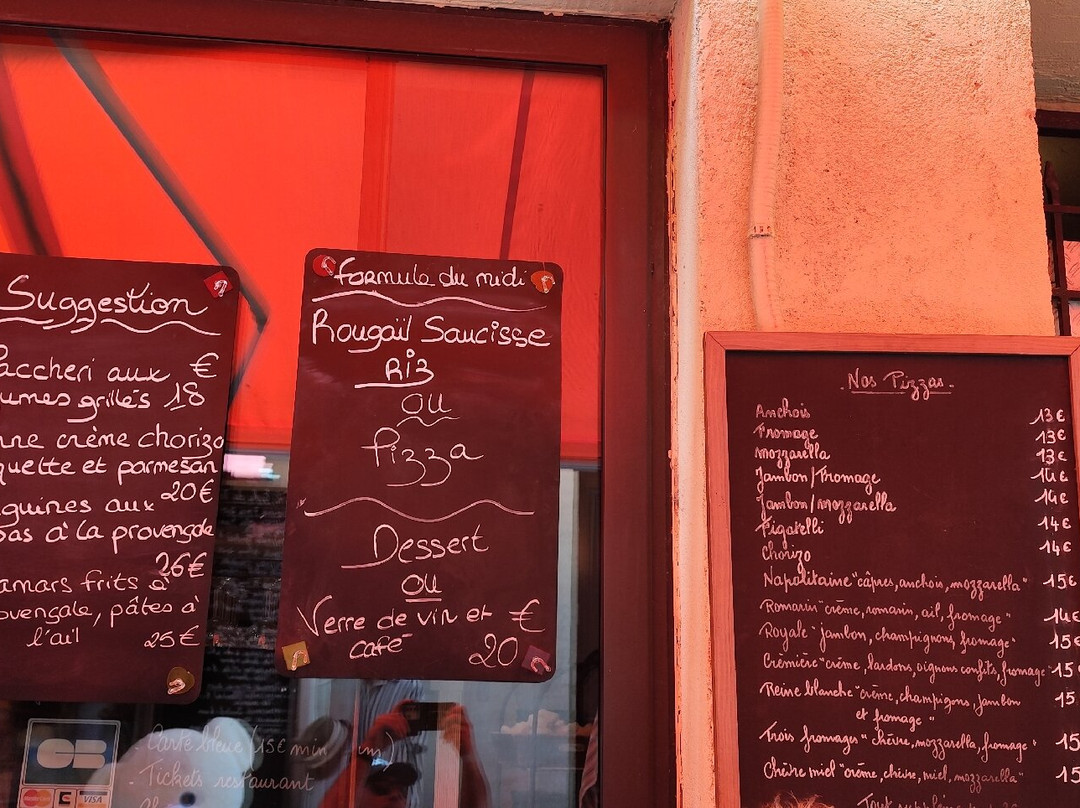 Suggestion
accheri aux €
umes grillés 18
nne crème chorizo
quette et parmesan
20€
guines aux
as à la provençale
26€
amars frits à
ovençale, pâtes à
l'ail 25€
formule du midi
Rougaïl Saucisse
Riz
ou
Pizza
Dessert
ou
Verre de vin et €
café 20
Nos Pizzas
Anchois 13€
Fromage 13€
mozzarella 13€
Jambon/Fromage 14€
Jambon/mozzarella 14€
Figatelli 14€
Chorizo 14€
Napolitaine "câpres, anchois, mozzarella" 15€
Romarin "crème, romarin, ail, fromage" 14€
Royale "jambon, champignons, fromage" 15€
Crèmière "crème, lardons, oignons confits, fromage" 15
Reine blanche "crème, champignons, jambon 15
et fromage"
Trois fromages "chèvre, mozzarella, fromage" 15
Chèvre miel "crème, chèvre, miel, mozzarella" 15
Tout supplém
CB
- Carte bleue (15€ min
- Tickets restaurant
VISA